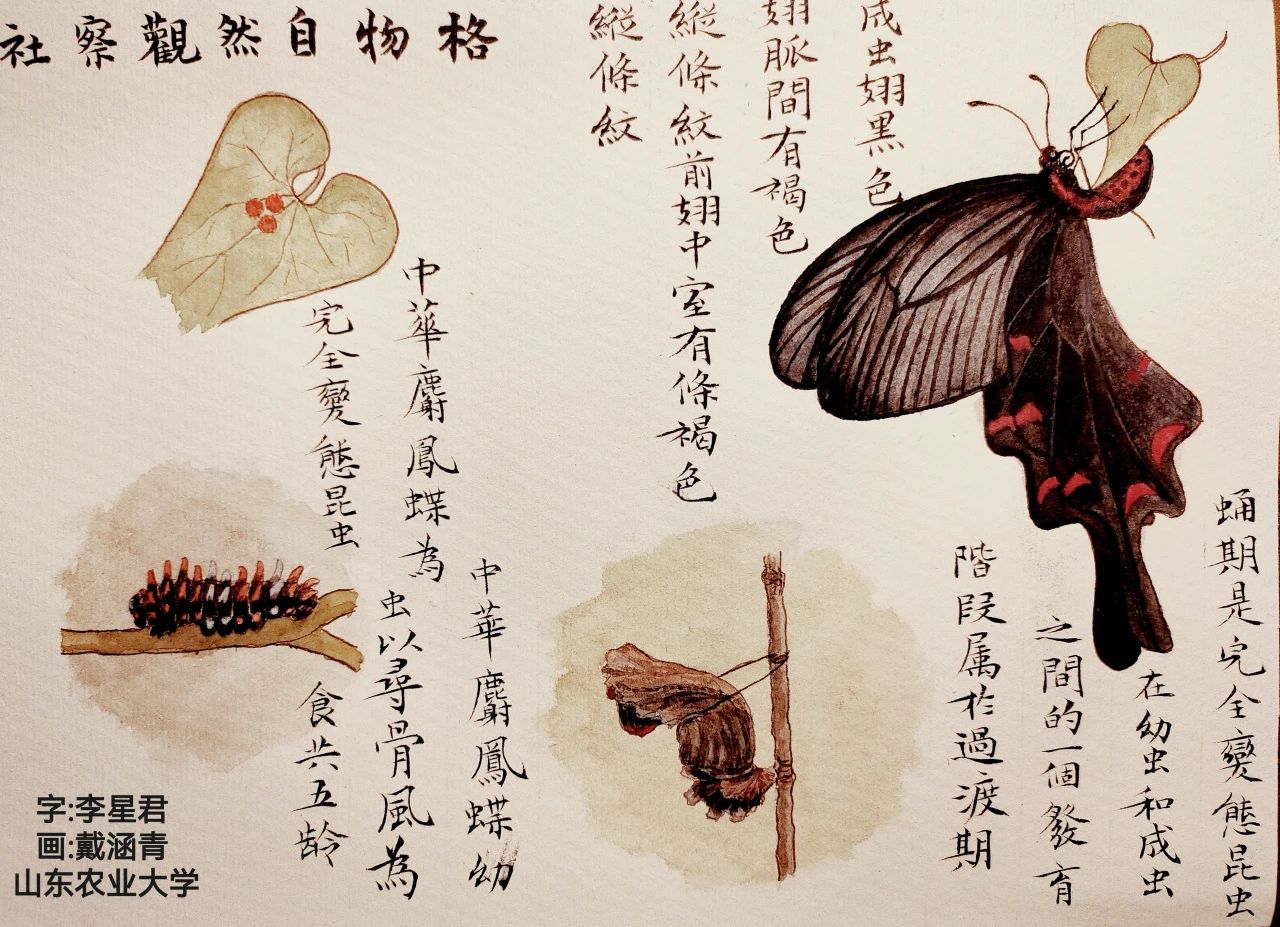 格物自然觀察社
成虫翅黑色
翅脈間有褐色
縱條紋前翅中室有條褐色
縱條紋
蛹期是完全變態昆虫
在幼虫和成虫
之間的一個發育
階段属於過渡期
中華麝鳳蝶為
完全變態昆虫
中華麝鳳蝶幼
虫以尋骨風為
食共五龄
字:李星君
画:戴涵青
山东农业大学